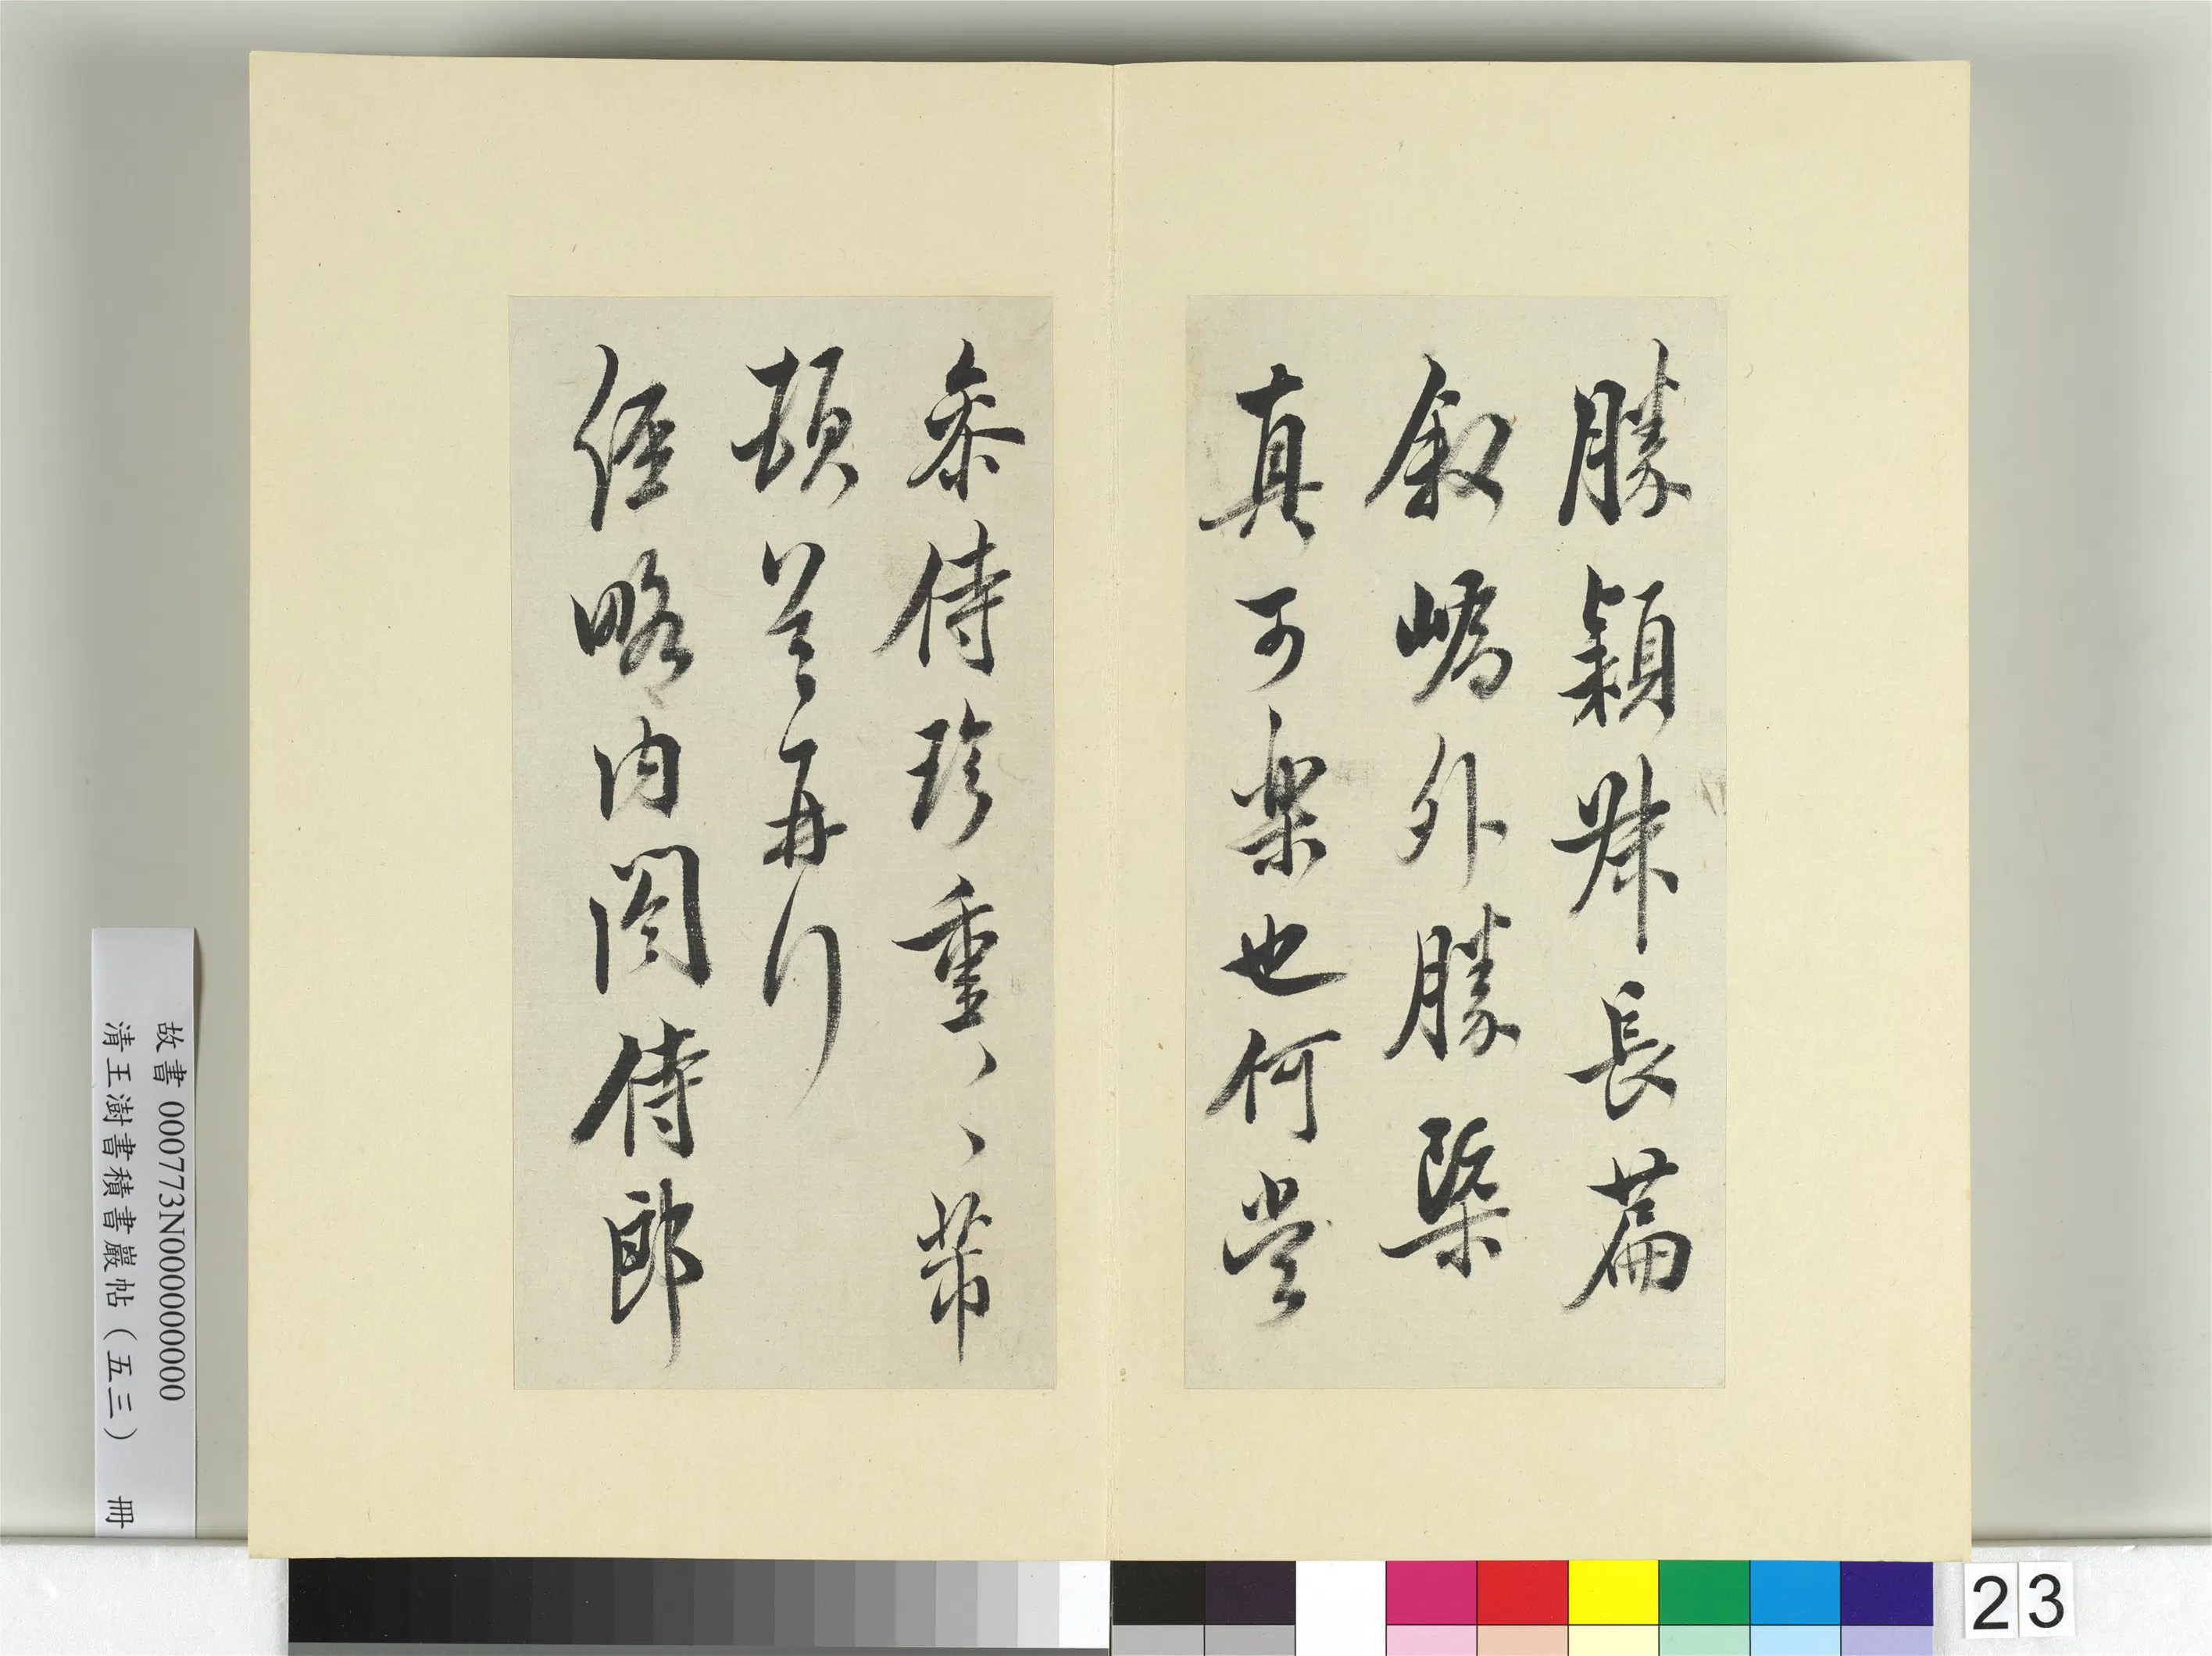 勝穎叔長篇
敘嶠外勝槩
真可樂也何當
參侍珍重、、芾
頓首再拜
經略內閣侍郎
故書 000773N000000000
清王澍書積書巖帖（五三） 冊
23